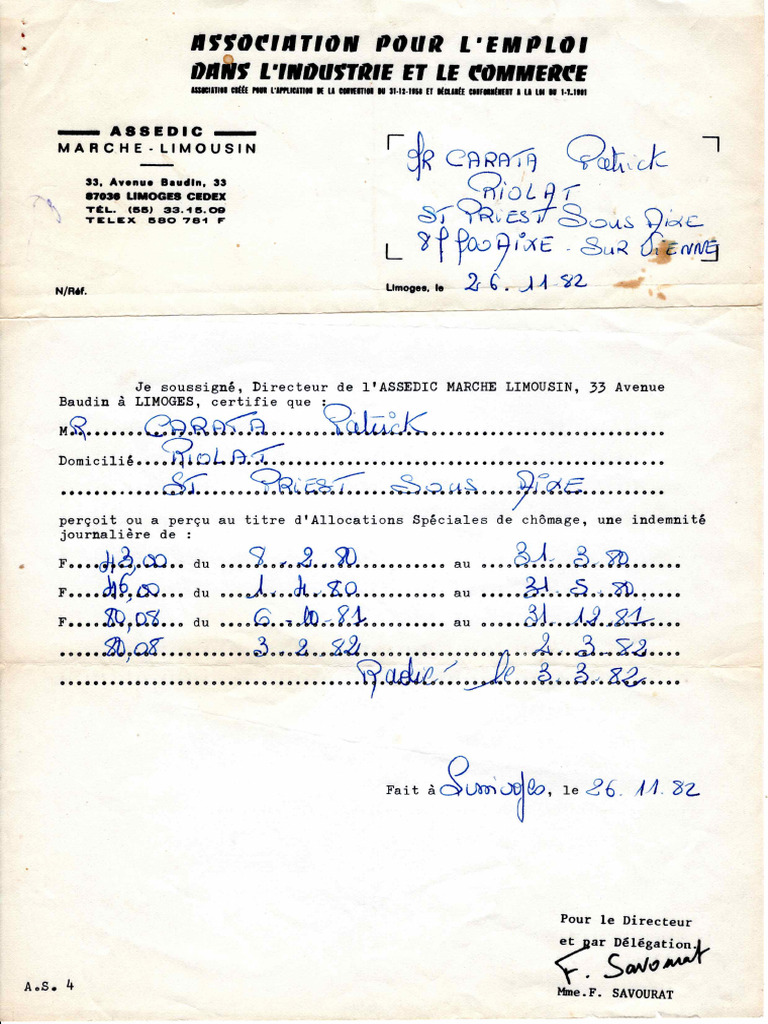 ASSOCIATION POUR L'EMPLOI
DANS L'INDUSTRIE ET LE COMMERCE
ASSOCIATION CRÉÉE POUR L'APPLICATION DE LA CONVENTION DU 31-12-1958 ET DÉCLARÉE CONFORMÉMENT A LA LOI DU 1-7-1901
ASSEDIC
MARCHE - LIMOUSIN
33, Avenue Baudin, 33
87036 LIMOGES CEDEX
TÉL. (55) 33.15.09
TELEX 580 781 F
MR CARATA Patrick
RIOLAT
ST PRIEST SOUS AIXE
87700 AIXE - SUR VIENNE
N/Réf.
Limoges, le 26.11.82
Je soussigné, Directeur de l'ASSEDIC MARCHE LIMOUSIN, 33 Avenue
Baudin à LIMOGES, certifie que :
MR CARATA Patrick
Domicilié RIOLAT
ST PRIEST SOUS AIXE
perçoit ou a perçu au titre d'Allocations Spéciales de chômage, une indemnité
journalière de :
F 43,00 du 8.2.80 au 31.3.80
F 46,00 du 1.4.80 au 31.5.80
F 80,08 du 6.10.81 au 31.12.81
80,08 3.2.82 2.3.82
Radié le 3.3.82
Fait à Limoges, le 26.11.82
Pour le Directeur
et par Délégation.
F. Savourat
Mme.F. SAVOURAT
A.S. 4